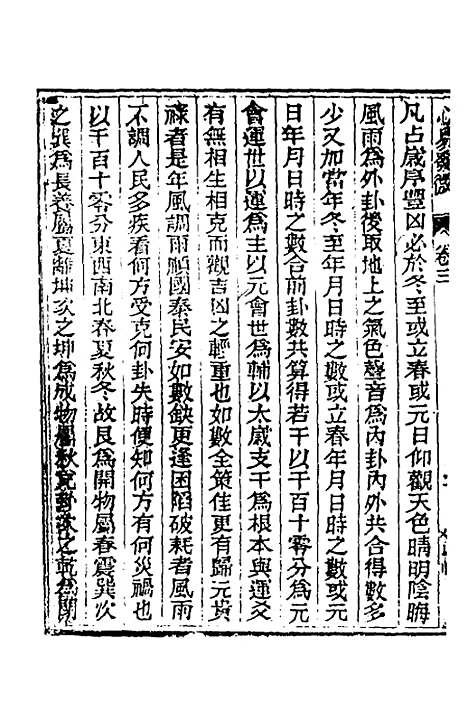 心易發微 卷三
凡占歲序豐凶必於冬至或立春或元日仰觀天色晴明陰晦
風雨爲外卦後取地上之氣色聲音爲內卦內外共合得數多
少又加當年冬至年月日時之數或立春年月日時之數或元
日年月日時之數合前卦數共算得若干以千百十零分爲元
會運世以運爲主以元會世爲輔以太歲支干爲根本與運爻
有無相生相克而觀吉凶之輕重也如數全策佳更有歸元黃
祿者是年風調雨順國泰民安如數缺更逢困陷破耗者風雨
不調人民多疾看何方受克何卦失時便知何方有何災禍也
以千百十零分東西南北春夏秋冬故艮爲開物屬春震巽次
之巽爲長養屬夏離坤次之坤爲成物屬秋兌 次之乾爲閉